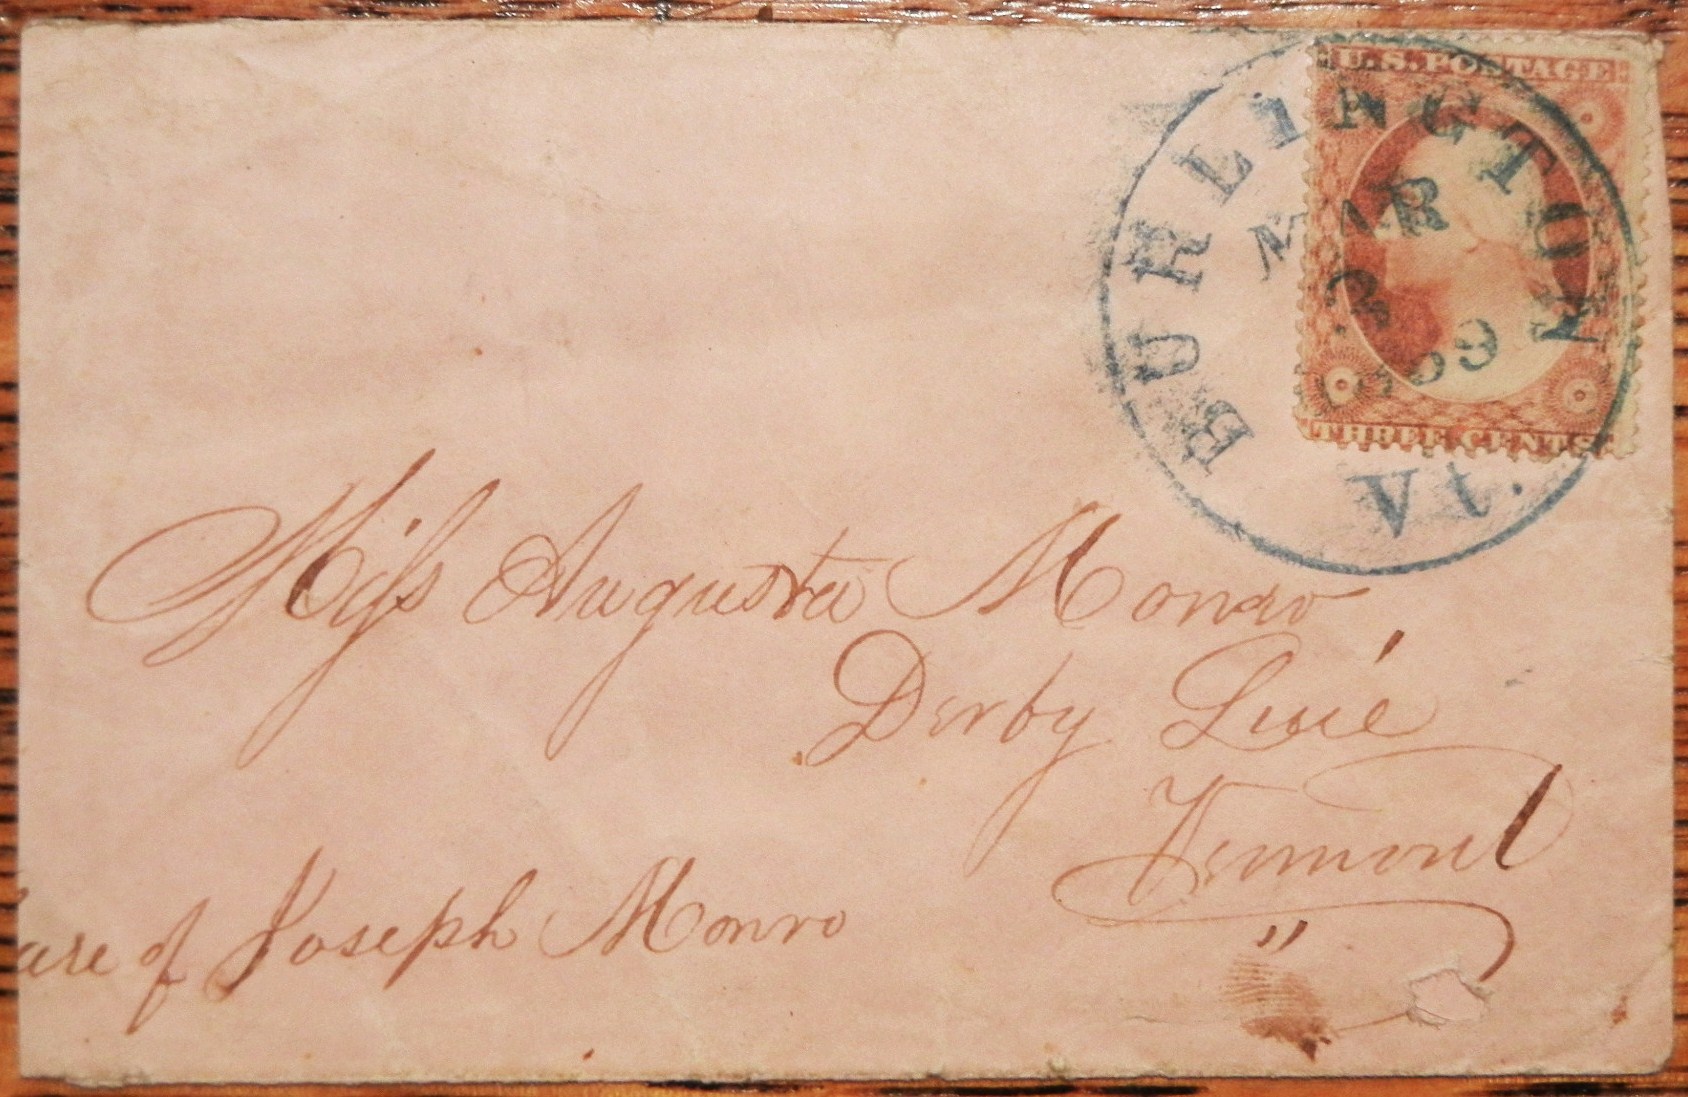 U.S. POSTAGE
BURLINGTON
MAR
1859
THREE CENTS
Vt.
Miss Augusta Monro
Derby Line
Vermont
are of Joseph Monro